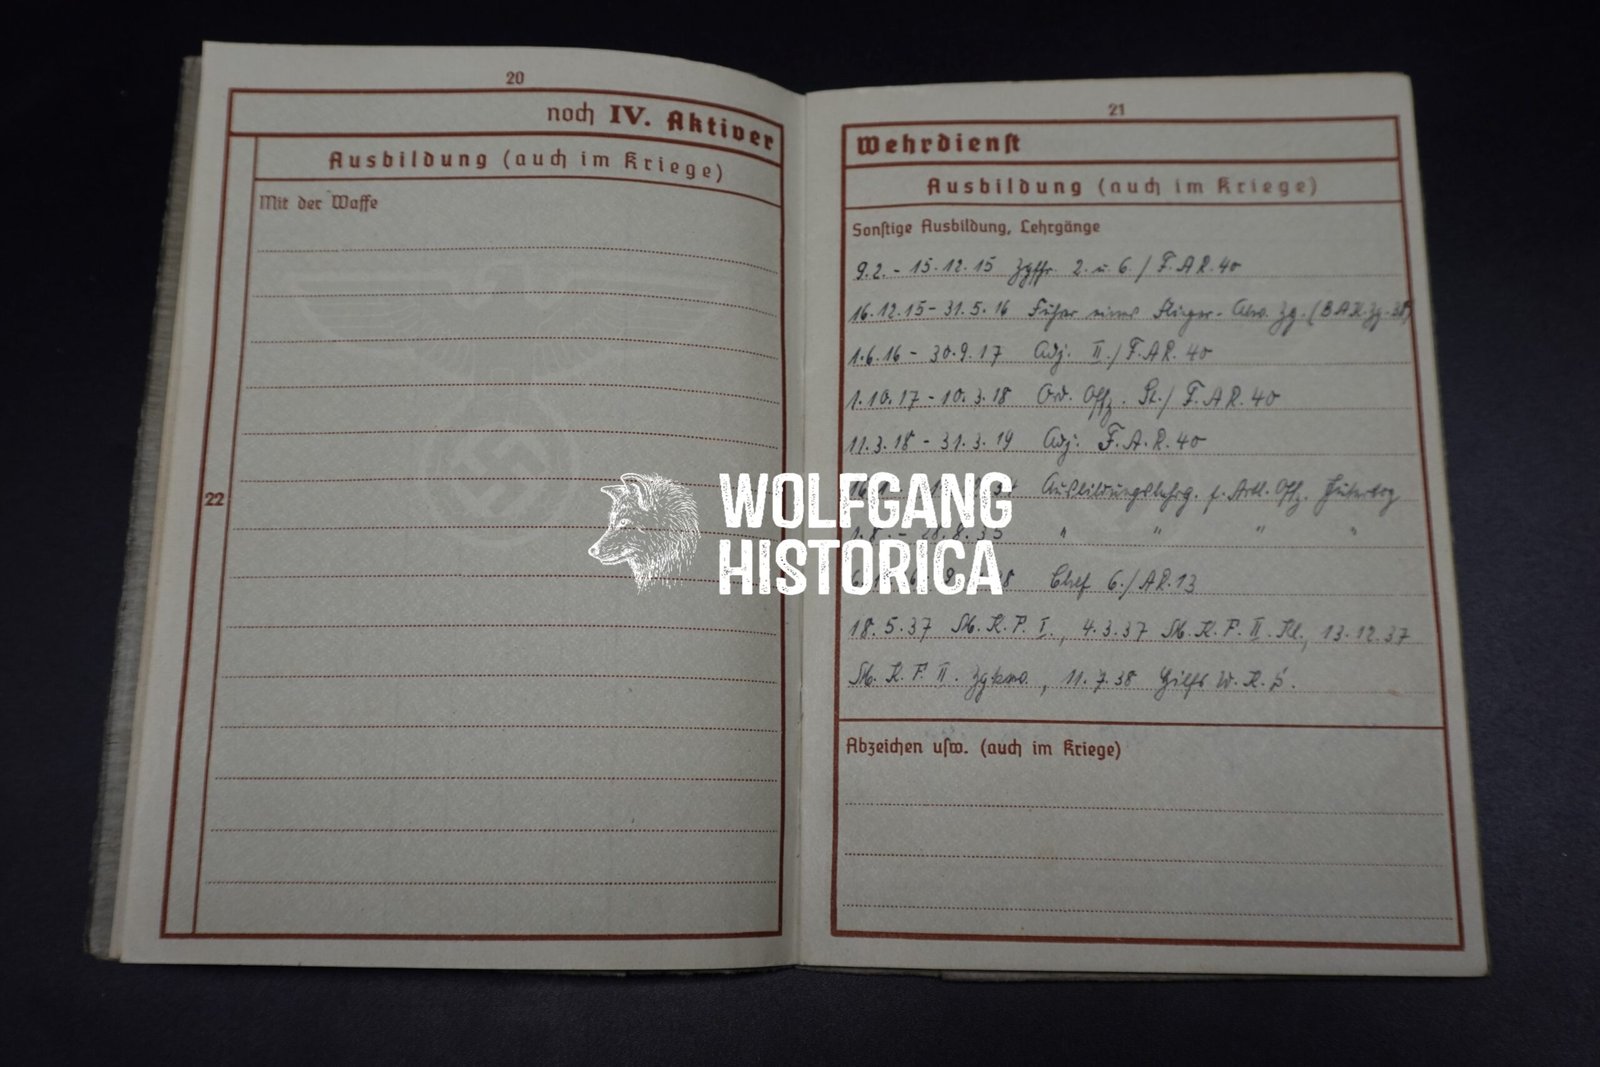 20
noch IV. Aktiver
Ausbildung (auch im Kriege)
Mit der Waffe
22
21
Wehrdienst
Ausbildung (auch im Kriege)
Sonstige Ausbildung, Lehrgänge
9.2. - 15.12.15 Zgfhr. 2. u. 6./ F.A.R. 40
16.12.15 - 31.5.16 Führer eines Flieger-Abw. Zg. (B.A.K. Zg. 38)
1.6.16 - 30.9.17 Adj. II./ F.A.R. 40
1.10.17 - 10.3.18 Ord. Offz. St./ F.A.R. 40
11.3.18 - 31.3.19 Adj. F.A.R. 40
Ausbildungslehrg. f. Artl. Offz. Jüterbog
1.8. - 28.8.35 " " " "
Chef 6./ AR. 13
18.5.37 Kb. K. F. I., 4.3.37 Kb. K. F. II. Kl., 13.12.37
Kb. K. F. II. Zgkw., 11.7.38 Hilfs W. K. S.
Abzeichen usw. (auch im Kriege)
WOLFGANG
HISTORICA